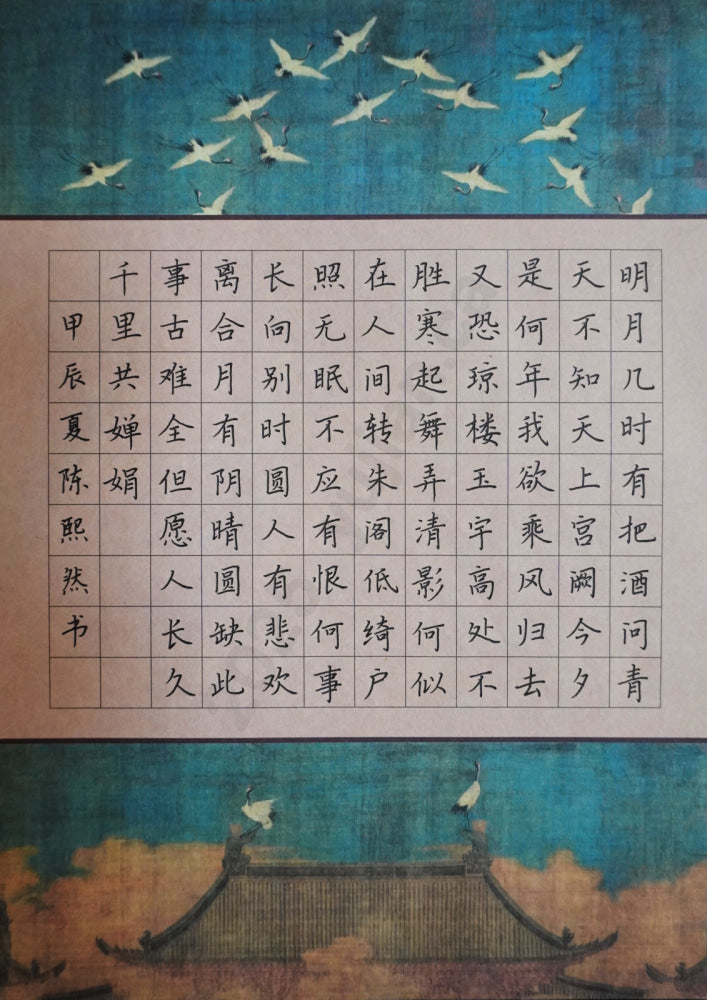 明月几时有把酒问青
天不知天上宫阙今夕
是何年我欲乘风归去
又恐琼楼玉宇高处不
胜寒起舞弄清影何似
在人间转朱阁低绮户
照无眠不应有恨何事
长向别时圆人有悲欢
离合月有阴晴圆缺此
事古难全但愿人长久
千里共婵娟
甲辰夏陈熙然书